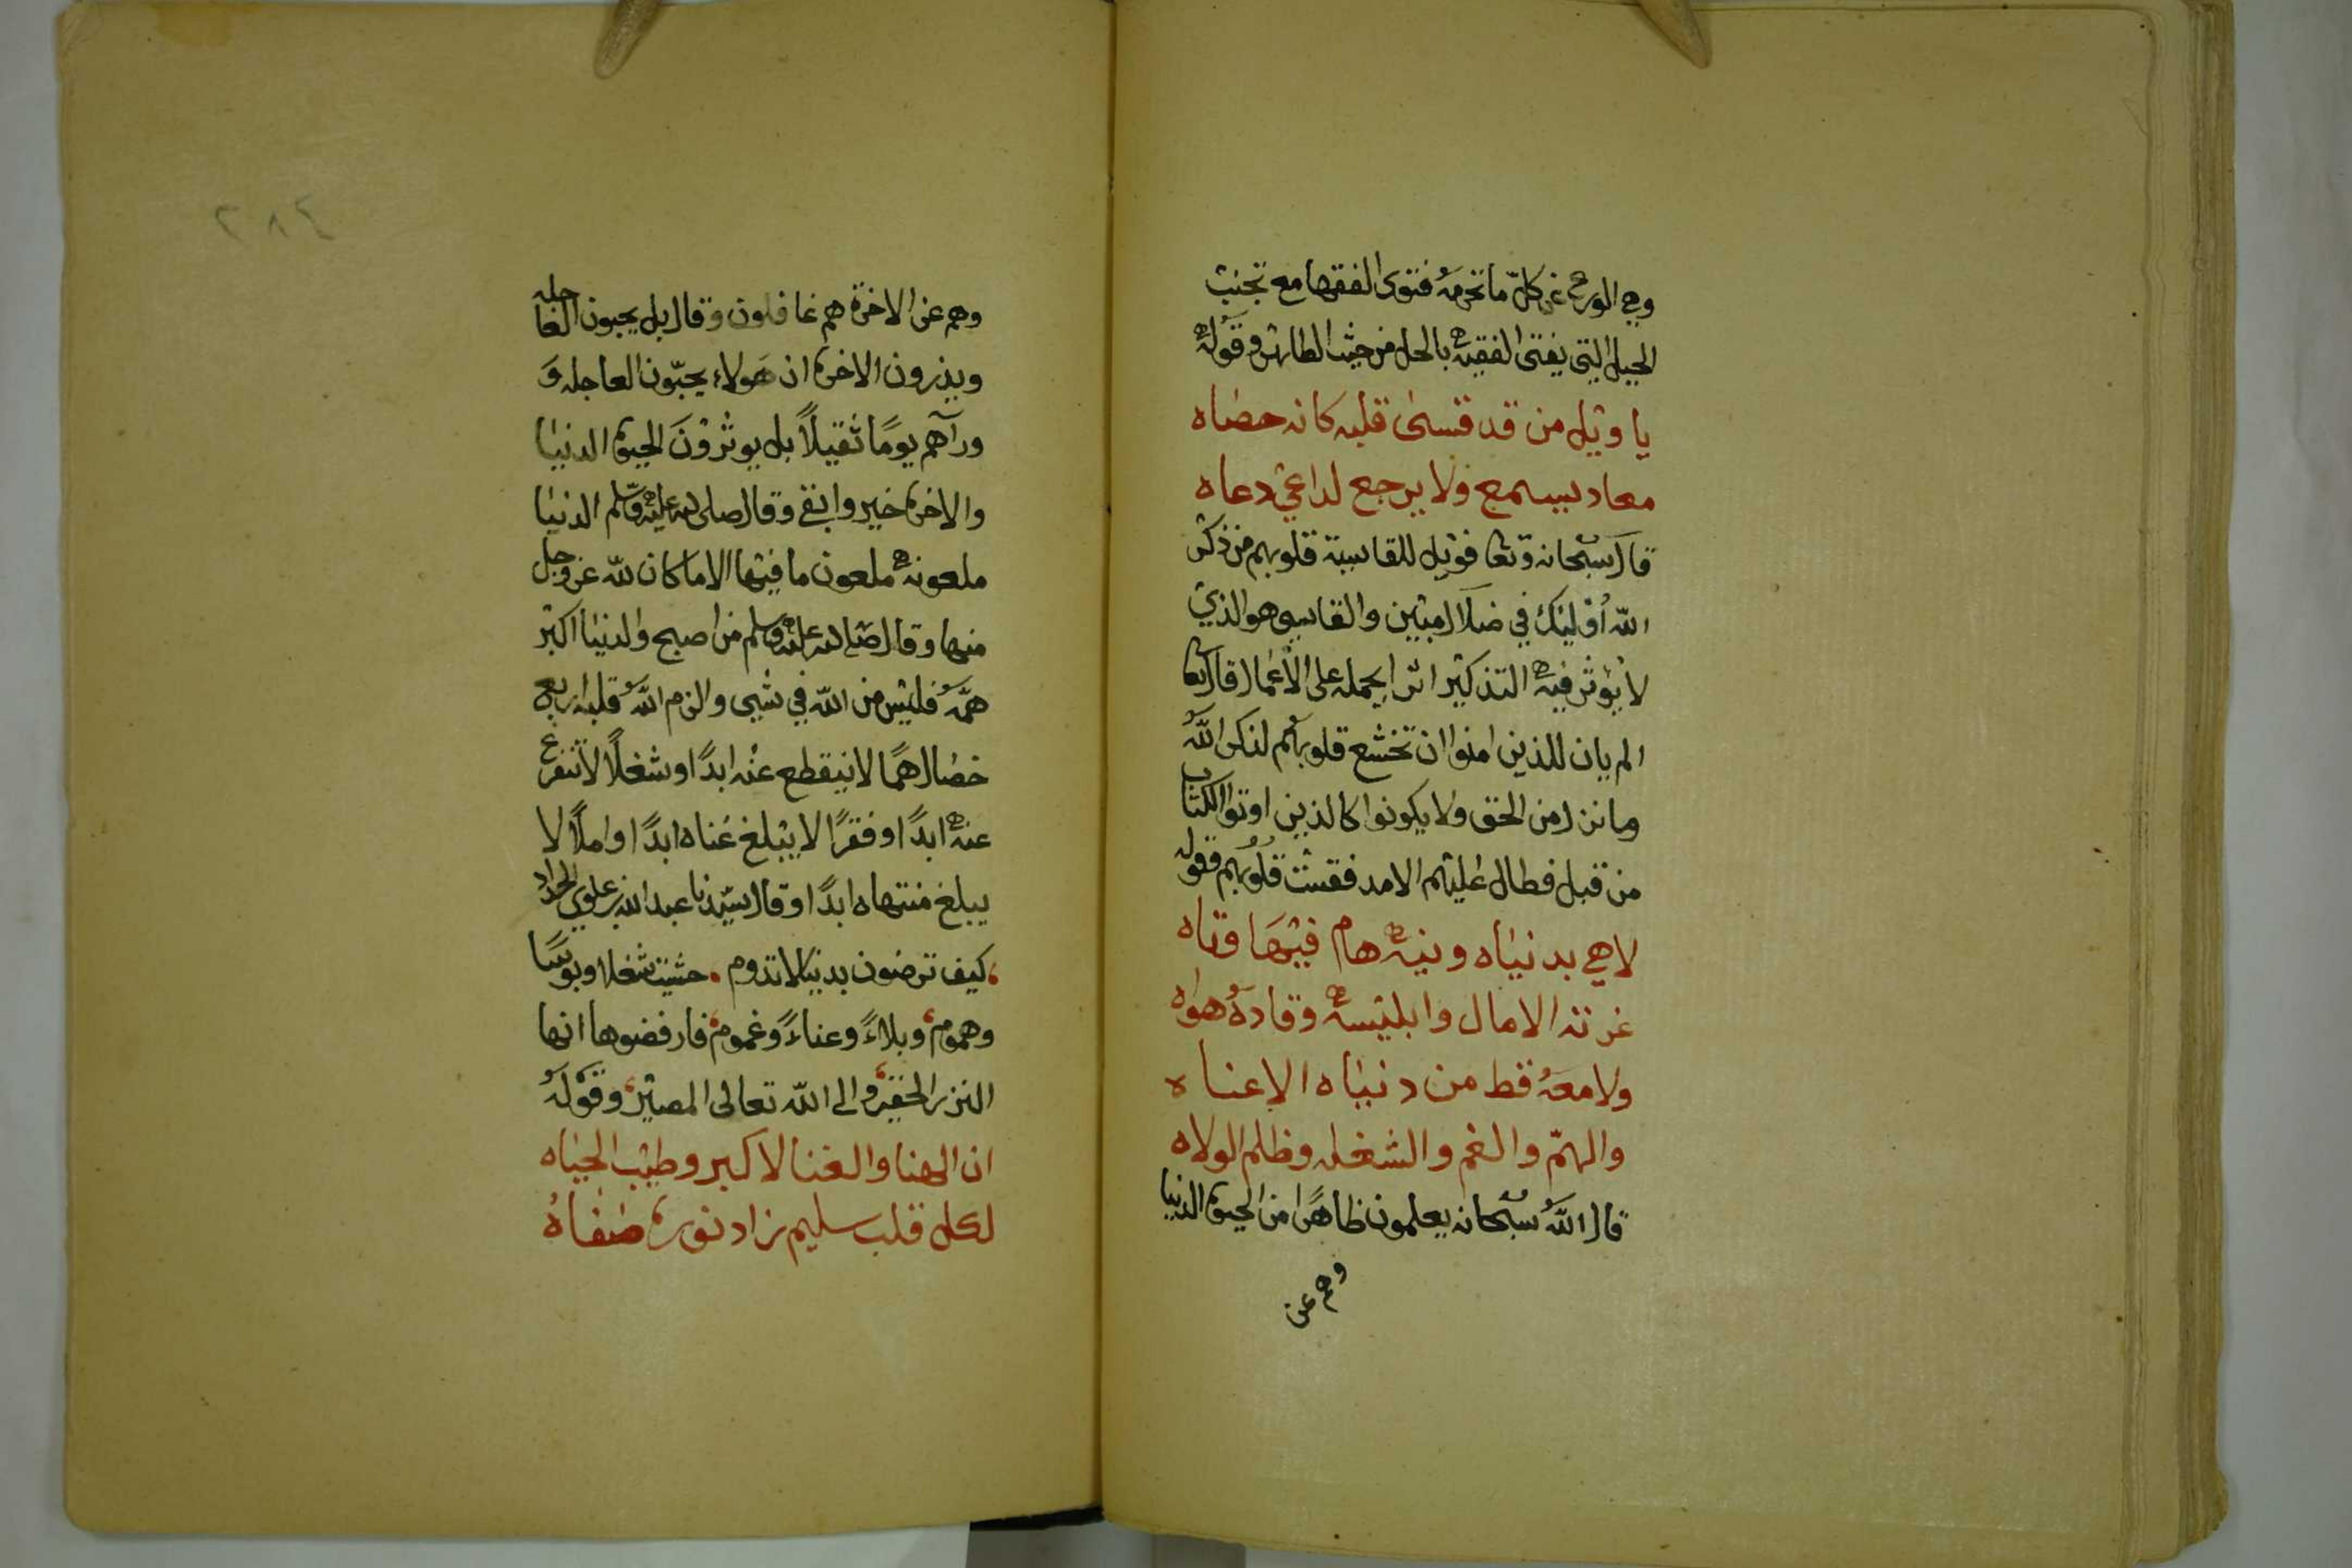 وهي الورع عن كلّ ما تحرمهُ فتوى الفقها مع تجنب
الحيل التي يفتى الفقيه بالحل من حيث الظاهر وقوله
يا ويل من قد قسى قلبه كانه حصاه
معاد يسمع ولا يرجع لداعي دعاه
قال سبحانه وتعا فويل للقاسية قلوبهم من ذكر
اللّه أوليك في ضلال مبين والقاسي هو الذي
لا يؤثر فيه التذكير اثرا يحمله على الأعمال قال تعا
الم يان للذين امنوا ان تخشع قلوبهم لذكر اللّه
وما نزل من الحق ولا يكونوا كالذين اوتوا الكتاب
من قبل فطال عليهم الامد فقست قلوبهم فقوله
لاهي بدنياه ونيه هام فيها وتاه
غرته الامال وابليسه وقادهُ هواه
ولا معهُ قط من دنياه الا عناه
والهمّ والغم والشغله وظلم الولاه
قال اللّه سبحانه يعلمون ظاهرًا من الحيوة الدنيا
وهم عن
٢٨٤
وهم عن الاخرة هم غافلون وقال بل يحبون العاجله
ويذرون الاخرة ان هَولاء يحبّون العاجله وَ
ورآهم يومًا ثقيلاً بل يوثرونَ الحيوة الدنيا
والاخرة خير وابقى وقال صلى الله عليه وسلم الدنيا
ملعونه ملعون ما فيها الا ما كان للّه عز وجل
منها وقال صلى الله عليه وسلم من اصبح والدنيا اكبر
همّهُ فليس من اللّه في شيى والزم اللّهُ قلبه اربع
خصال همًا لا ينقطع عنُه ابدًا وشغلًا لا يتفرغ
عنه ابدًا وفقرًا لا يبلغ غناه ابدًا واملاً لا
يبلغ منتهاه ابدًا وقال سيّدنا عبد الله بن علوي الحداد
كيف ترضون بدنيا لا تدوم حشيت شغلا وبوسًا
وهموم وبلاءً وعناءً وغموم فارفضوها انها
النزر الحقير والى اللّه تعالى المصير وقولهُ
ان الهنا والغنا الاكبر وطيب الحياه
لكل قلب سليم زاد نوره صفاهُ